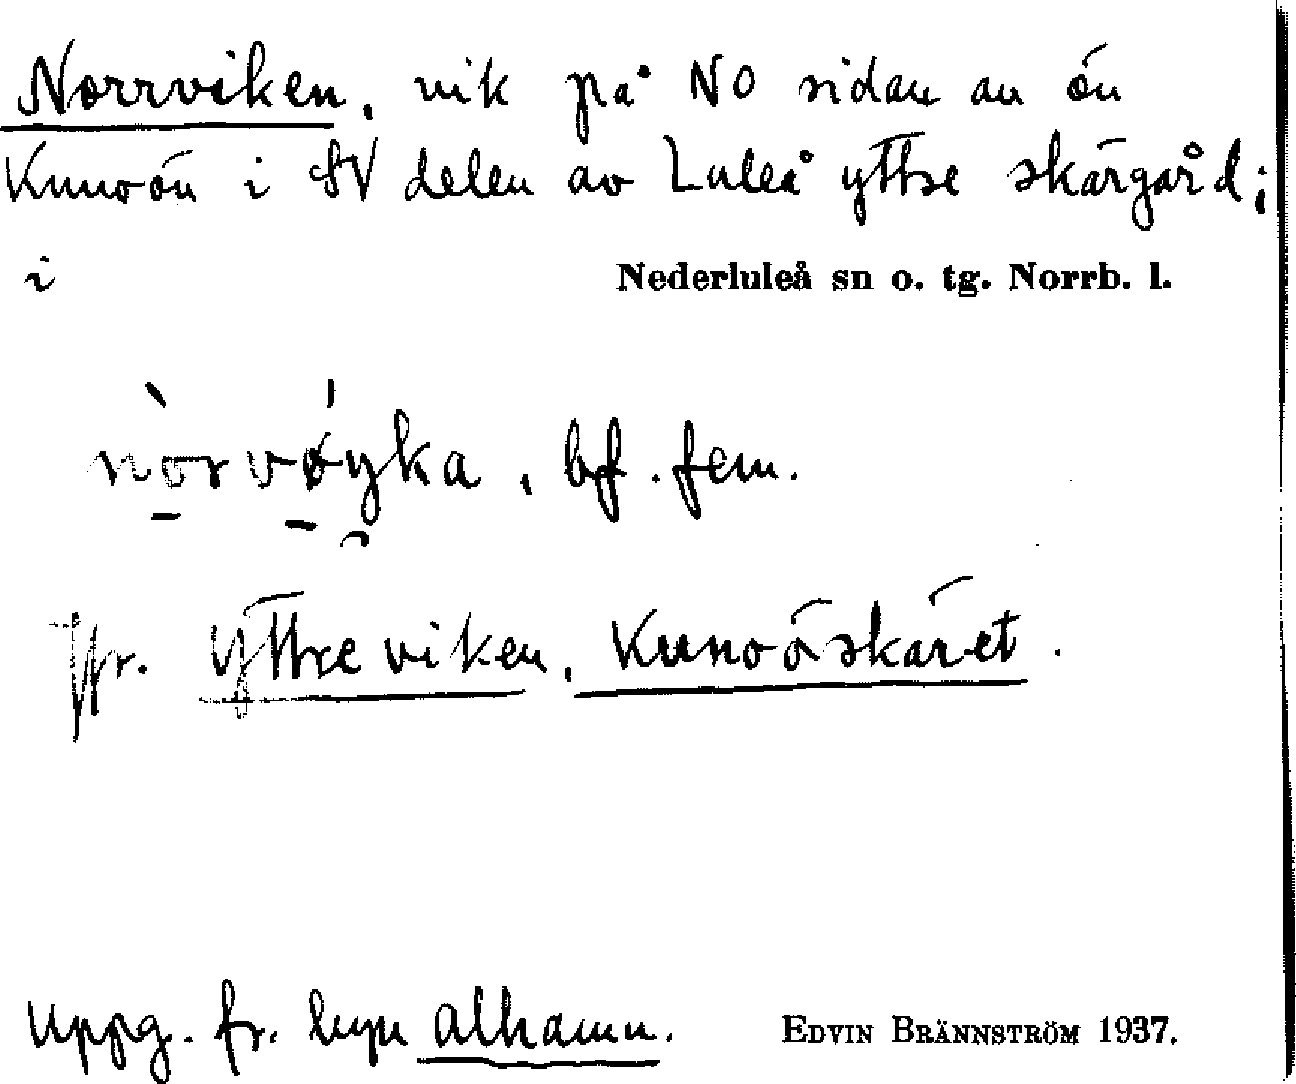 Norrviken, vik på NO sidan av ön
Kunoön i SV delen av Luleå yttre skärgård;
i Nederluleå sn o. tg. Norrb. l.
nòrvǿyka, bf. fem.
Jfr. Yttreviken, Kunoöskäret.
Uppg. fr. byn Alhamn. EDVIN BRÄNNSTRÖM 1937.